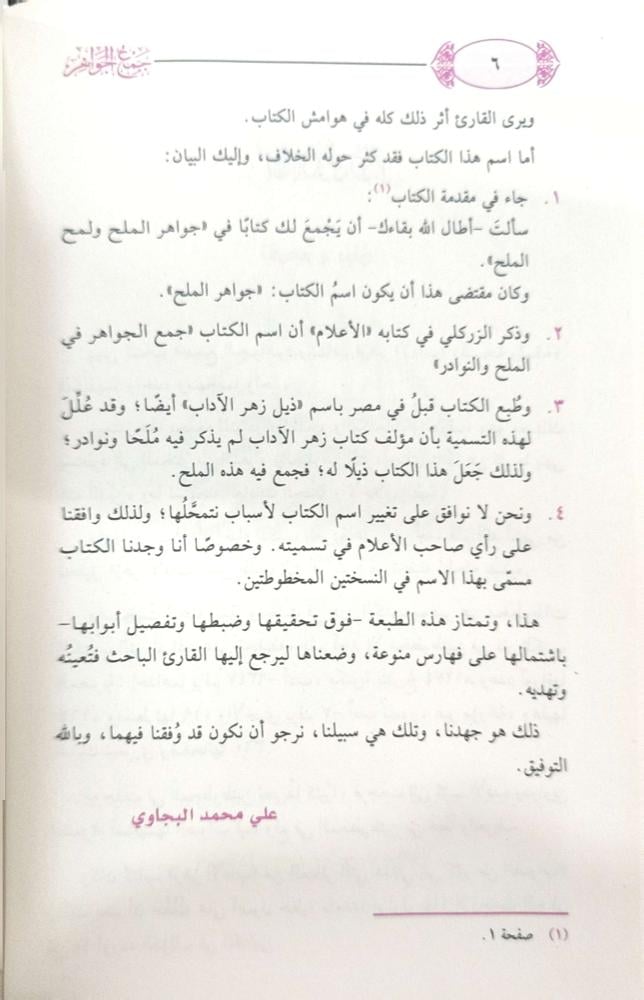 ٦
جمع الجواهر
ويرى القارئ أثر ذلك كله في هوامش الكتاب.
أما اسم هذا الكتاب فقد كثر حوله الخلاف، وإليك البيان:
١. جاء في مقدمة الكتاب(١):
سألتَ -أطال الله بقاءك- أن يَجْمعَ لك كتابًا في «جواهر الملح ولمح
الملح».
وكان مقتضى هذا أن يكون اسمُ الكتاب: «جواهر الملح».
٢. وذكر الزركلي في كتابه «الأعلام» أن اسم الكتاب «جمع الجواهر في
الملح والنوادر»
٣. وطُبع الكتاب قبلُ في مصر باسم «ذيل زهر الآداب» أيضًا؛ وقد عُلِّلَ
لهذه التسمية بأن مؤلف كتاب زهر الآداب لم يذكر فيه مُلَحًا ونوادر؛
ولذلك جَعَلَ هذا الكتاب ذيلًا له؛ فجمع فيه هذه الملح.
٤. ونحن لا نوافق على تغيير اسم الكتاب لأسباب نتمحَّلُها؛ ولذلك وافقنا
على رأي صاحب الأعلام في تسميته. وخصوصًا أنا وجدنا الكتاب
مسمّى بهذا الاسم في النسختين المخطوطتين.
هذا، وتمتاز هذه الطبعة -فوق تحقيقها وضبطها وتفصيل أبوابها-
باشتمالها على فهارس منوعة، وضعناها ليرجع إليها القارئ الباحث فتُعينُه
وتهديه.
ذلك هو جهدنا، وتلك هي سبيلنا، نرجو أن نكون قد وُفقنا فيهما، وبالله
التوفيق.
علي محمد البجاوي
(١) صفحة ١.